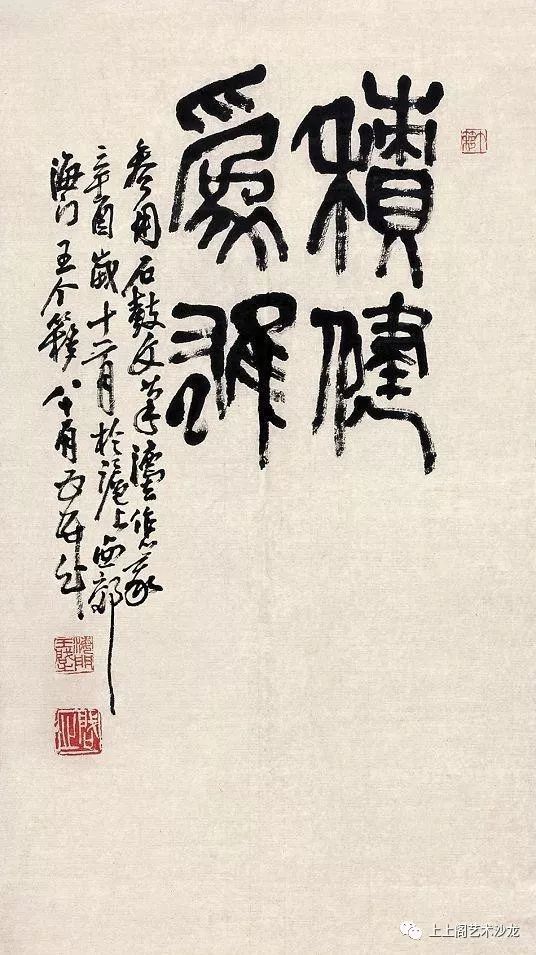 積健
為雄
參用石鼓文筆灋作篆
辛酉歲十月於滬上西郊
海門王个簃八十有五
海門王賢
上上阁艺术沙龙